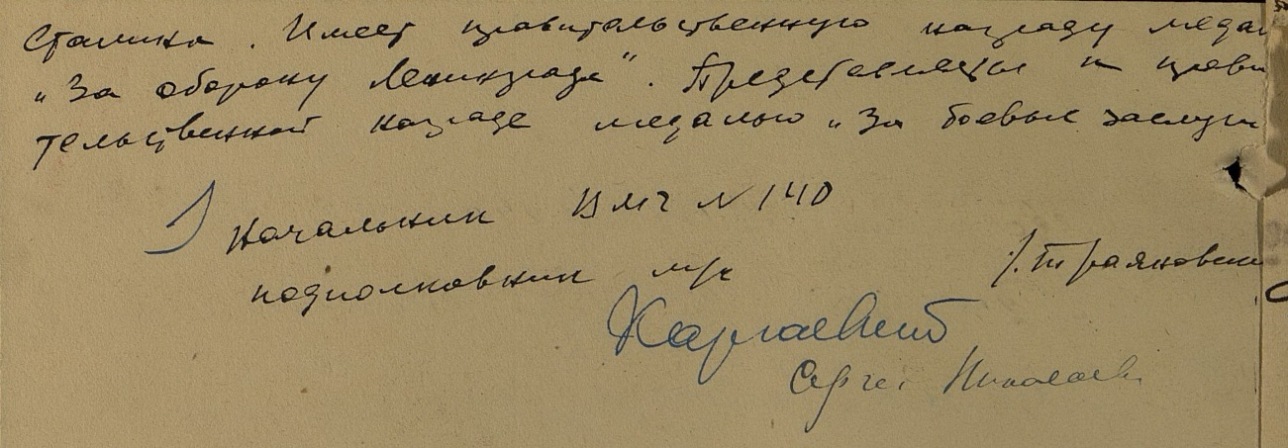 Сталина. Имеет правительственную награду медал
"За оборону Ленинграда". Представляется к прави
тельственной награде медалью "За боевые заслуги
Начальник ВМГ N 140
подполковник м/с
/. Трояновски
Сергей Николаев